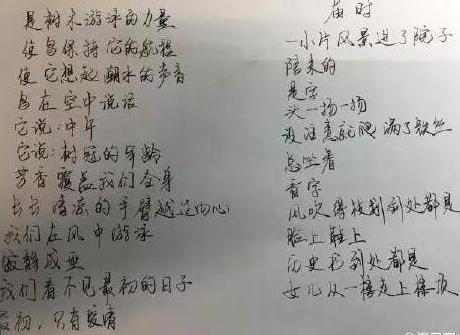 是树木游泳的力量
使鸟保持它的航程
使它想起潮水的声音
鸟在空中说话
它说:中年
它说:树冠的年龄
芳香覆盖我们全身
长长 清凉的手臂越过内心
我们在风中游泳
寂静成型
我们看不见最初的日子
最初,只有爱情
庙时
一小片风景进了院子
陪来的
是字
头一扬一扬
没注意就爬满了铁丝
总坐着
看字
风吹得枝到处都是
脸上鞋上
历史书到处都是
女儿从一棵走上橡顶